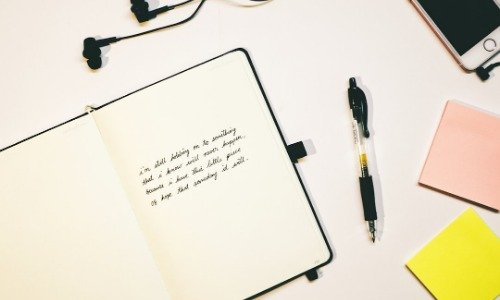 i'm still holding on to something
that i know will never happen.
because i have that little piece
of hope that someday it will.